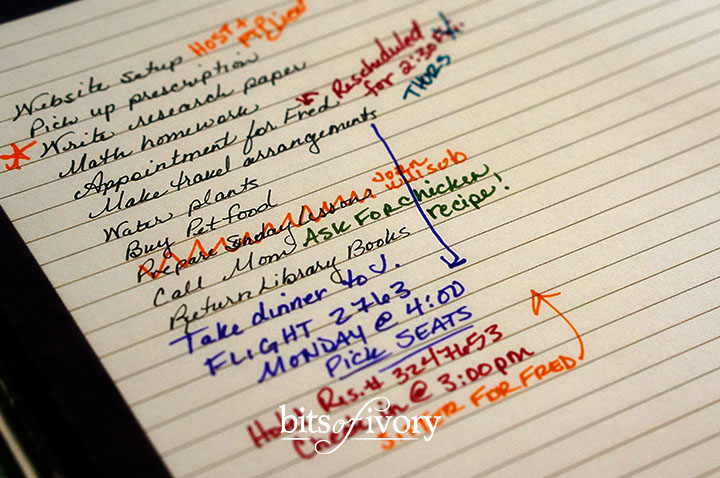 Website setup HOST +
Pick up prescription
Write research paper
Math homework Rescheduled
for 2:30
THURS
Appointment for Fred
Make travel arrangements
Water plants
Buy Pet food
Prepare Sunday Lessons John will sub
Call Mom ASK FOR chicken
recipe!
Return Library Books
Take dinner to J.
FLIGHT 2763
MONDAY @ 4:00
Pick SEATS
Hotel Res.# 3247653
Check in @ 3:00pm
SITTER FOR FRED
bits of ivory